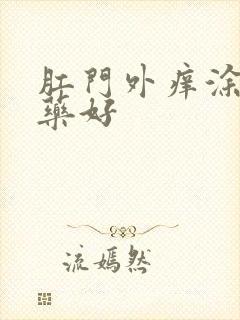 肛門外痒涂
藥好
流嫣然